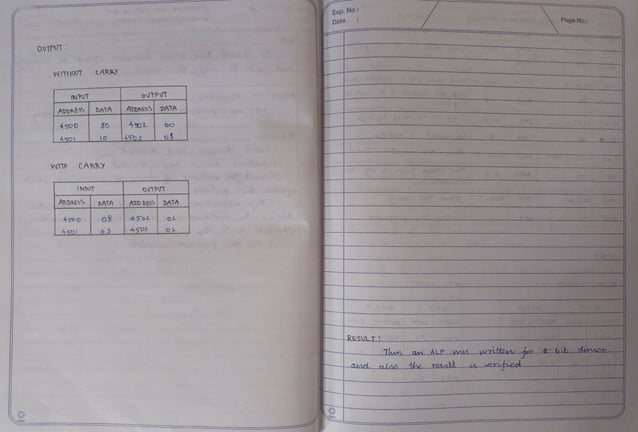 OUTPUT :
WITHOUT CARRY
INPUT OUTPUT
ADDRESS DATA ADDRESS DATA
4500 80 4502 00
4501 10 4503 08
WITH CARRY
INPUT OUTPUT
ADDRESS DATA ADDRESS DATA
4500 08 4502 02
4501 03 4503 02
Exp. No :
Date :
Page No.:
RESULT :
Thus an ALP was written for 8-bit divisor
and also the result is verified